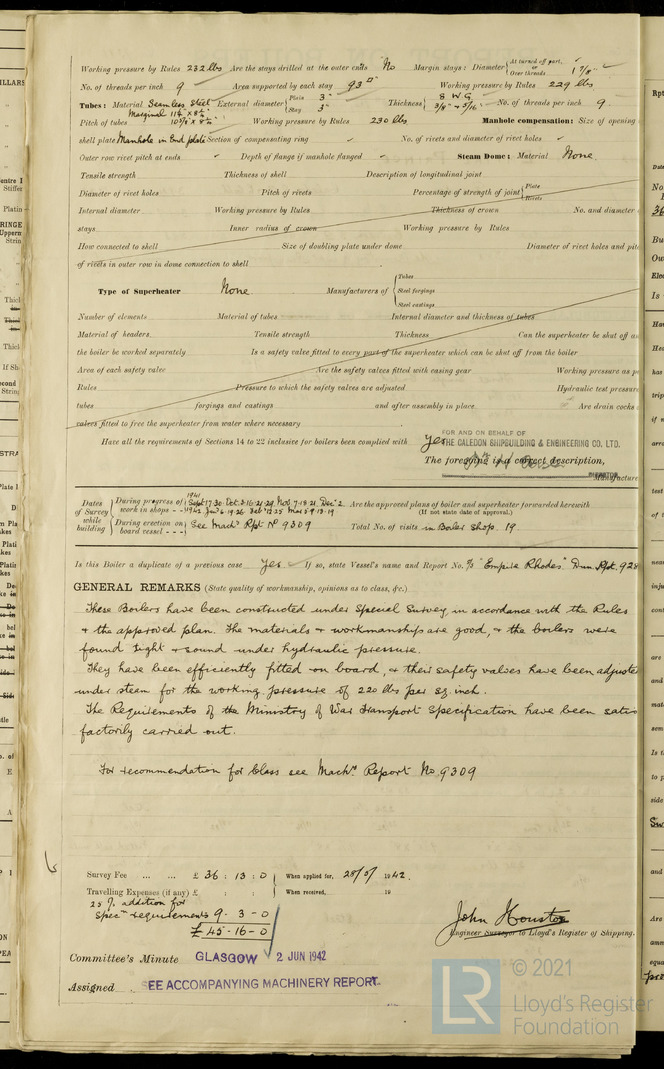 Working pressure by Rules 232 lbs Are the stays drilled at the outer ends No Margin stays: Diameter { At turned off part, or Over threads 1 7/8"
No. of threads per inch 9 Area supported by each stay 93 □" Working pressure by Rules 229 lbs
Tubes: Material Seamless Steel External diameter { Plain 3" Stay 3" Thickness { 8 W.G. 3/8" + 5/16" No. of threads per inch 9
Pitch of tubes Working pressure by Rules 230 lbs Manhole compensation: Size of opening
shell plate Manhole in End plate Section of compensating ring No. of rivets and diameter of rivet holes
Outer row rivet pitch at ends Depth of flange if manhole flanged Steam Dome: Material None
Tensile strength Thickness of shell Description of longitudinal joint
Diameter of rivet holes Pitch of rivets Percentage of strength of joint { Plate Rivets
Internal diameter Working pressure by Rules Thickness of crown No. and diameter
stays Inner radius of crown Working pressure by Rules
How connected to shell Size of doubling plate under dome Diameter of rivet holes and
of rivets in outer row in dome connection to shell
Type of Superheater None Manufacturers of { Tubes Steel forgings Steel castings
Number of elements Material of tubes Internal diameter and thickness of tubes
Material of headers Tensile strength Thickness Can the superheater be shut off
the boiler be worked separately Is a safety valve fitted to every part of the superheater which can be shut off from the boiler
Area of each safety valve Are the safety valves fitted with easing gear Working pressure as
Rules Pressure to which the safety valves are adjusted Hydraulic test pressure
tubes forgings and castings and after assembly in place Are drain cocks
valves fitted to free the superheater from water where necessary
FOR AND ON BEHALF OF
Have all the requirements of Sections 14 to 22 inclusive for boilers been complied with Yes THE CALEDON SHIPBUILDING & ENGINEERING CO. LTD.
The foregoing is a correct description,
Manufacture
Dates of Survey while building { During progress of work in shops - - 1941 Sept. 17. 30. Oct. 3. 16. 21. 29. Nov. 7. 18. 21. Dec. 2 Are the approved plans of boiler and superheater forwarded herewith
(If not state date of approval.)
During erection on board vessel - - - See Machy Rpt No 9309 Total No. of visits in Boiler Shop. 19
Is this Boiler a duplicate of a previous case Yes If so, state Vessel's name and Report No. "Empire Rhodes" Dun Rpt. 928
GENERAL REMARKS (State quality of workmanship, opinions as to class, &c.)
These Boilers have been constructed under Special Survey in accordance with the Rules
+ the approved plan. The materials + workmanship are good, + the boilers were
found tight + sound under hydraulic pressure.
They have been efficiently fitted on board, + their safety valves have been adjuste
under steam for the working pressure of 220 lbs per sq. inch.
The Requirements of the Ministry of War Transport Specification have been satis
factorily carried out.
For recommendation for Class see Machy Report No. 9309
Survey Fee ... ... £ 36 : 13 : 0 When applied for, 28/5/ 1942.
Travelling Expenses (if any) £ : : When received, 19
25% addition for
Specn requirements 9 - 3 - 0
£45 - 16 - 0
John Houston
Engineer Surveyor to Lloyd's Register of Shipping.
Committee's Minute GLASGOW 2 JUN 1942
Assigned SEE ACCOMPANYING MACHINERY REPORT.
LR © 2021
Lloyd's Register
Foundation